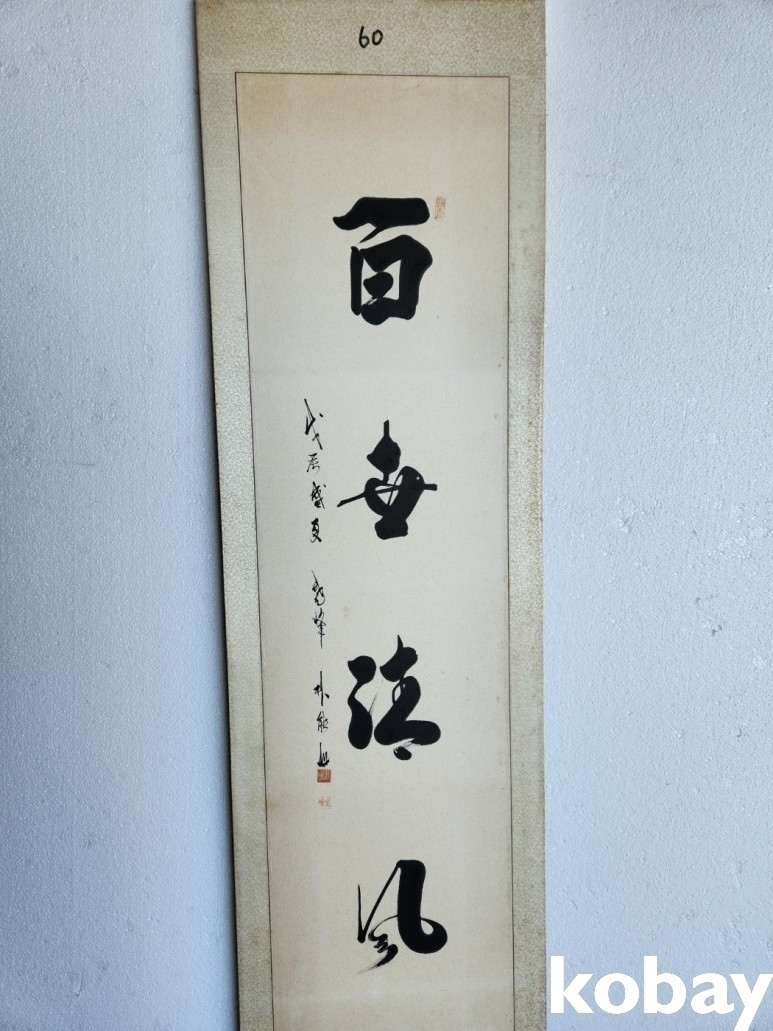 60
百世清風
戊辰盛夏 峰 朴
kobay